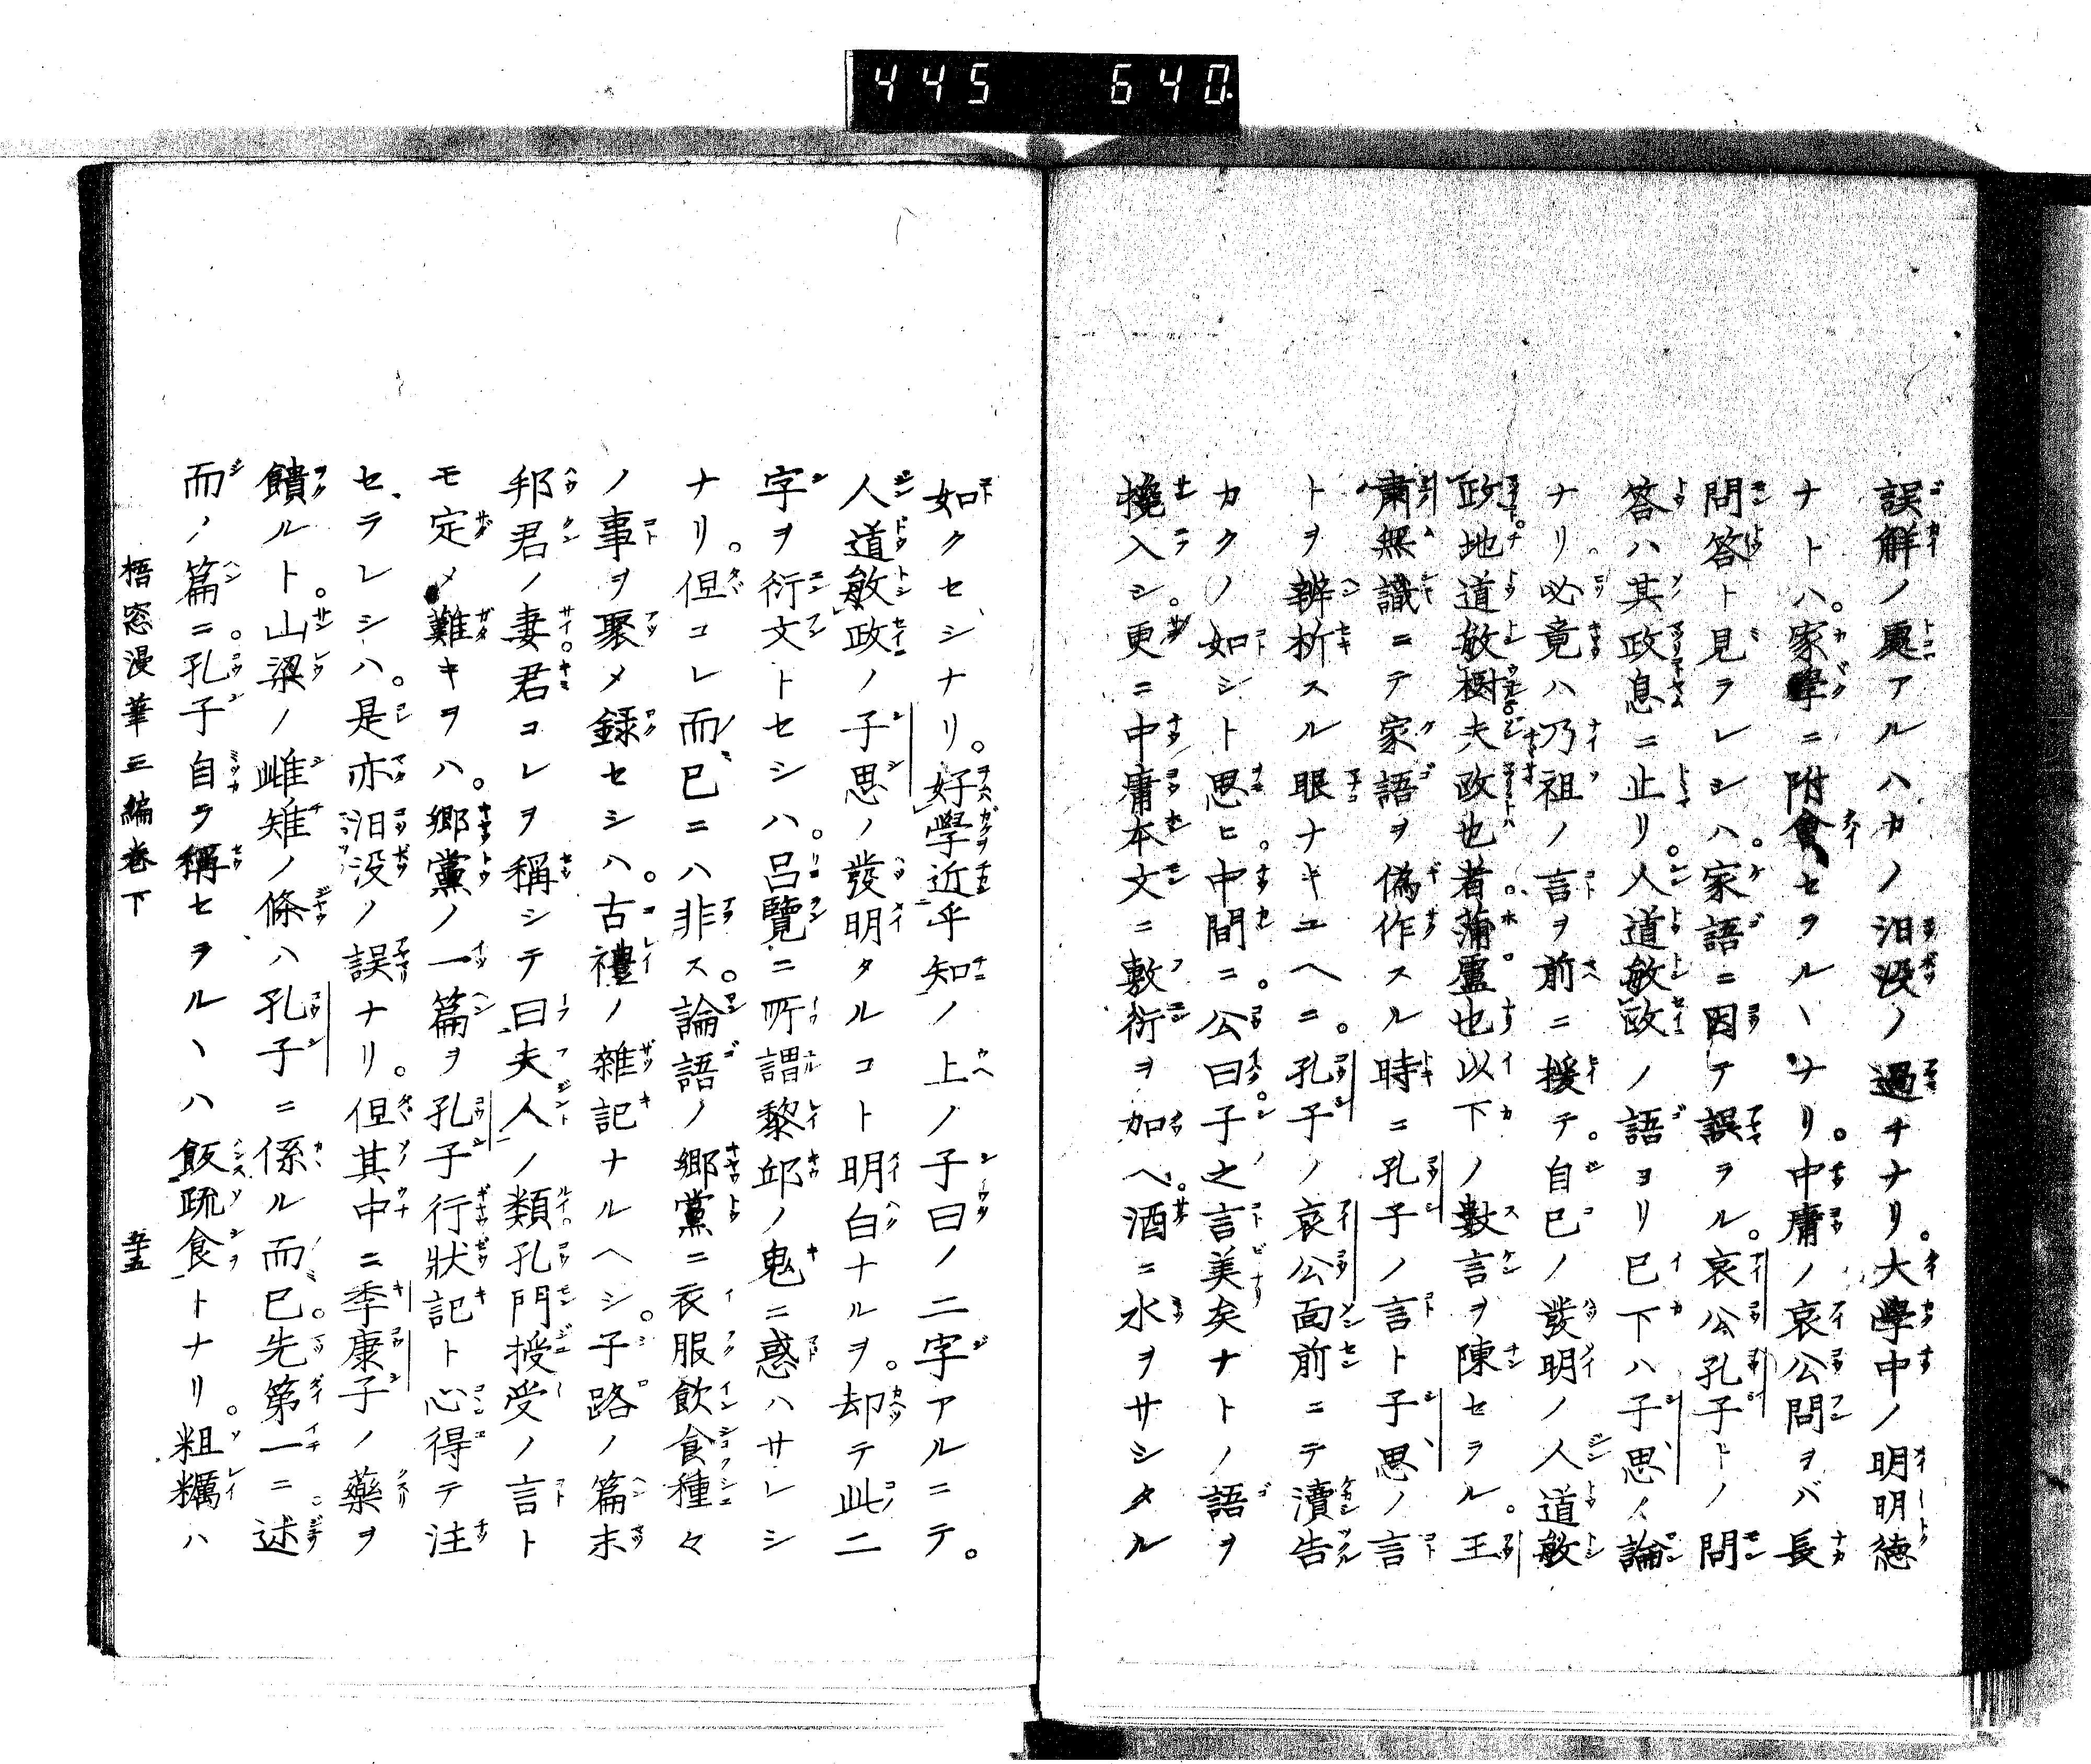 445 640
誤解ノ處アルハカノ汨没ノ過チナリ。大學中ノ明明徳
ナトハ。家學ニ附會セラルヽナリ。中庸ノ哀公問ヲバ長
問答ト見ラレシハ。家語ニ因テ誤ラル。哀公孔子トノ問
答ハ其政息ニ止リ。人道敏政ノ語ヨリ已下ハ子思ノ論
ナリ。必竟ハ乃祖ノ言ヲ前ニ援テ。自己ノ發明ノ人道敏
政地道敏樹夫政也者。蒲盧也以下ノ數言ヲ陳セラル。王
肅無識ニテ家語ヲ偽作スル時ニ孔子ノ言ト子思ノ言
トヲ辨析スル眼ナキユヘニ。孔子ノ哀公面前ニテ瀆告
カクノ如シト思ヒ。中間ニ。公曰子之言美矣ナトノ語ヲ
攙入シ。更ニ中庸本文ニ敷衍ヲ加ヘ。酒ニ水ヲサシタル
如クセシナリ。好學近乎知ノ上ノ子曰ノ二字アルニテ。
人道敏政ノ子思ノ發明タルコト明白ナルヲ。却テ此二
字ヲ衍文トセシハ。呂覽ニ所謂黎邱ノ鬼ニ惑ハサレシ
ナリ。但コレ而已ニハ非ス。論語ノ郷黨ニ衣服飲食種々
ノ事ヲ聚メ録セシハ。古禮ノ雜記ナルヘシ。子路ノ篇末
邦君ノ妻。君コレヲ稱シテ曰夫人ノ類。孔門授受ノ言ト
モ定メ難キヲハ。郷黨ノ一篇ヲ孔子行狀記ト心得テ注
セラレシハ。是亦汨没ノ誤ナリ。但其中ニ季康子ノ藥ヲ
饋ルト。山梁ノ雌雉ノ條ハ孔子ニ係ル而已。先第一ニ述
而ノ篇ニ。孔子自ラ稱セラルヽハ飯疏食トナリ。粗糲ハ
梧窓漫筆三編巻下　五十五